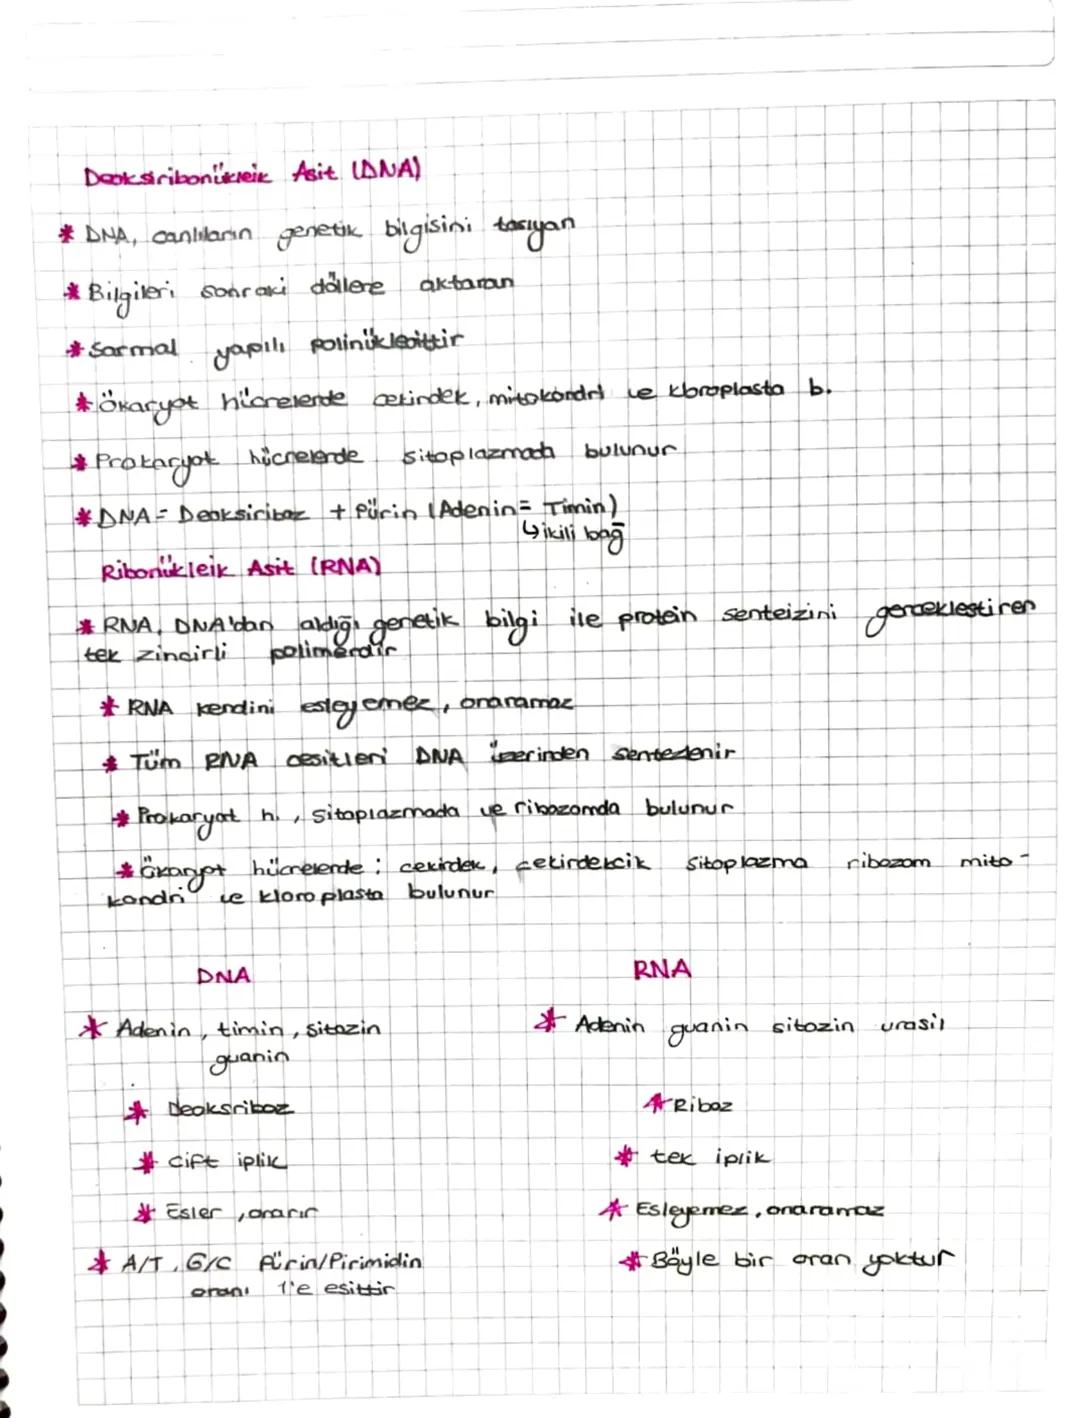 Deoksiribonükleik Asit (DNA)
* DNA, canlıların genetik bilgisini tasıyan
* Bilgileri sonraki döllere aktaran
* Sarmal yapılı polinükleoittir
* Ökaryot hücrelerde cekirdek, mitokondri ve kloroplasta b.
* Prokaryot hücrelerde sitoplazmada bulunur
* DNA = Deoksiriboz + Pürin (Adenin = Timin)
↳ ikili bağ
Ribonükleik Asit (RNA)
* RNA, DNA'dan aldığı genetik bilgi ile protein senteizini gerceklestiren
tek zincirli polimerdir
* RNA kendini esleyemez, onaramaz
* Tüm RNA cesitleri DNA üzerinden sentezlenir
* Prokaryot h. , sitoplazmada ve ribozomda bulunur
* Ökaryot hücrelerde ; cekirdek, çekirdekcik sitoplazma ribozom mito-
kondri ve kloroplasta bulunur
DNA RNA
* Adenin, timin, sitozin * Adenin guanin sitozin urasil
guanin
* Deoksriboz * Riboz
* Cift iplik * tek iplik
* Esler, onarır * Esleyemez, onaramaz
* A/T, G/C Pürin/Pirimidin * Böyle bir oran yoktur
oranı 1'e esittir